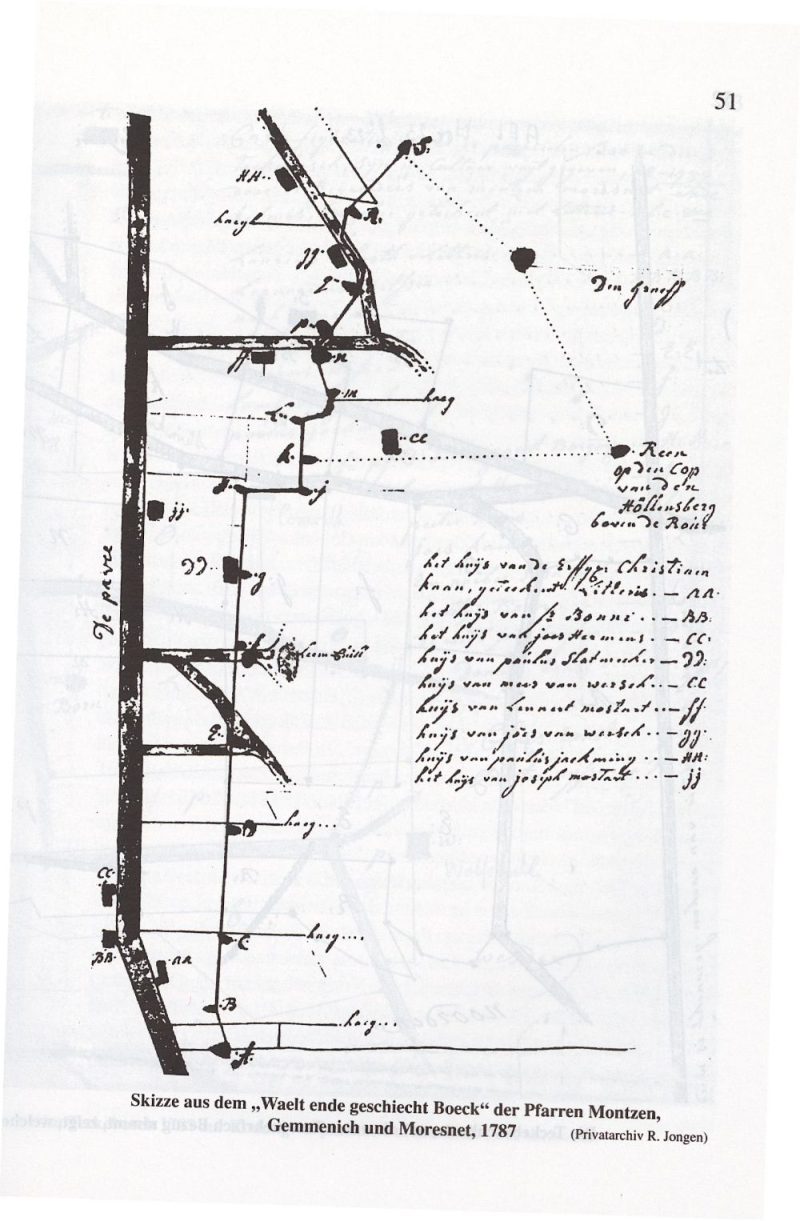 51
S.
HH..
R.
haegh
gg.
Q.
Den Hreeff
p.
ff
n
m
haeg
L.
ee
k.
Reen
op den Cop
van den
Höllensberg
boven de Roier
J.
j
jj.
De pavee
DD.
g
het huijs van de Christiaen
haan, geteekent Litteris. — AA.
het huijs van Bonni .. — BB.
het huijs van joes Hermens .. — CC.
huijs van paulus Slatmecker — DD:
huijs van mees van wersch ... — CC
huijs van Lennert mostart ... — ff.
huijs van jöes van wersch .... — gg.
huijs van paulus jackming ... — HH.
het huijs van joseph mostart .... — jj
h
Leem
e.
D
haeg...
CC.
C
haeg....
BB.
AA
B
haeg...
A.
Skizze aus dem „Waelt ende geschiecht Boeck“ der Pfarren Montzen,
Gemmenich und Moresnet, 1787 (Privatarchiv R. Jongen)